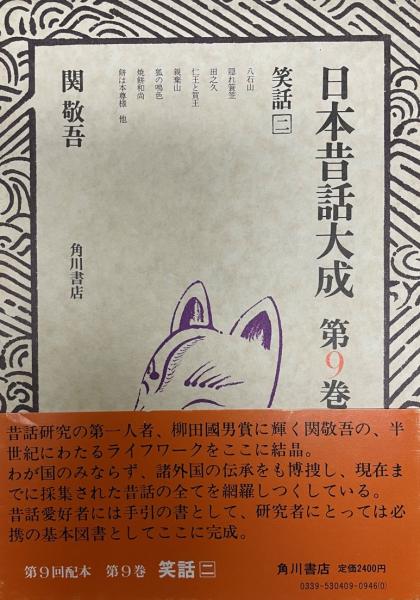 日本昔話大成 第9巻
笑話 二
八石山
隠れ蓑笠
田之久
仁王と賀王
親棄山
狐の鳴色
焼餅和尚
餅は本尊様 他
関 敬吾
角川書店
昔話研究の第一人者、柳田國男賞に輝く関敬吾の、半
世紀にわたるライフワークをここに結晶。
わが国のみならず、諸外国の伝承をも博捜し、現在ま
でに採集された昔話の全てを網羅しつくしている。
昔話愛好者には手引の書として、研究者にとっては必
携の基本図書としてここに完成。
第9回配本 第9巻 笑話 二
角川書店 定価2400円
0339-530409-0946(0)